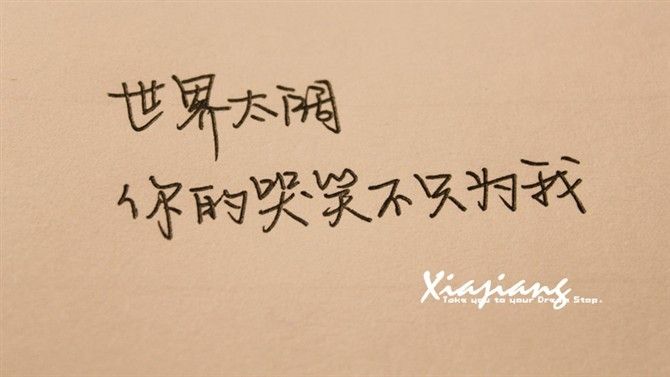 世界太阔
你的哭笑不只为我
Xiajiang
Take you to your Dream Stop.